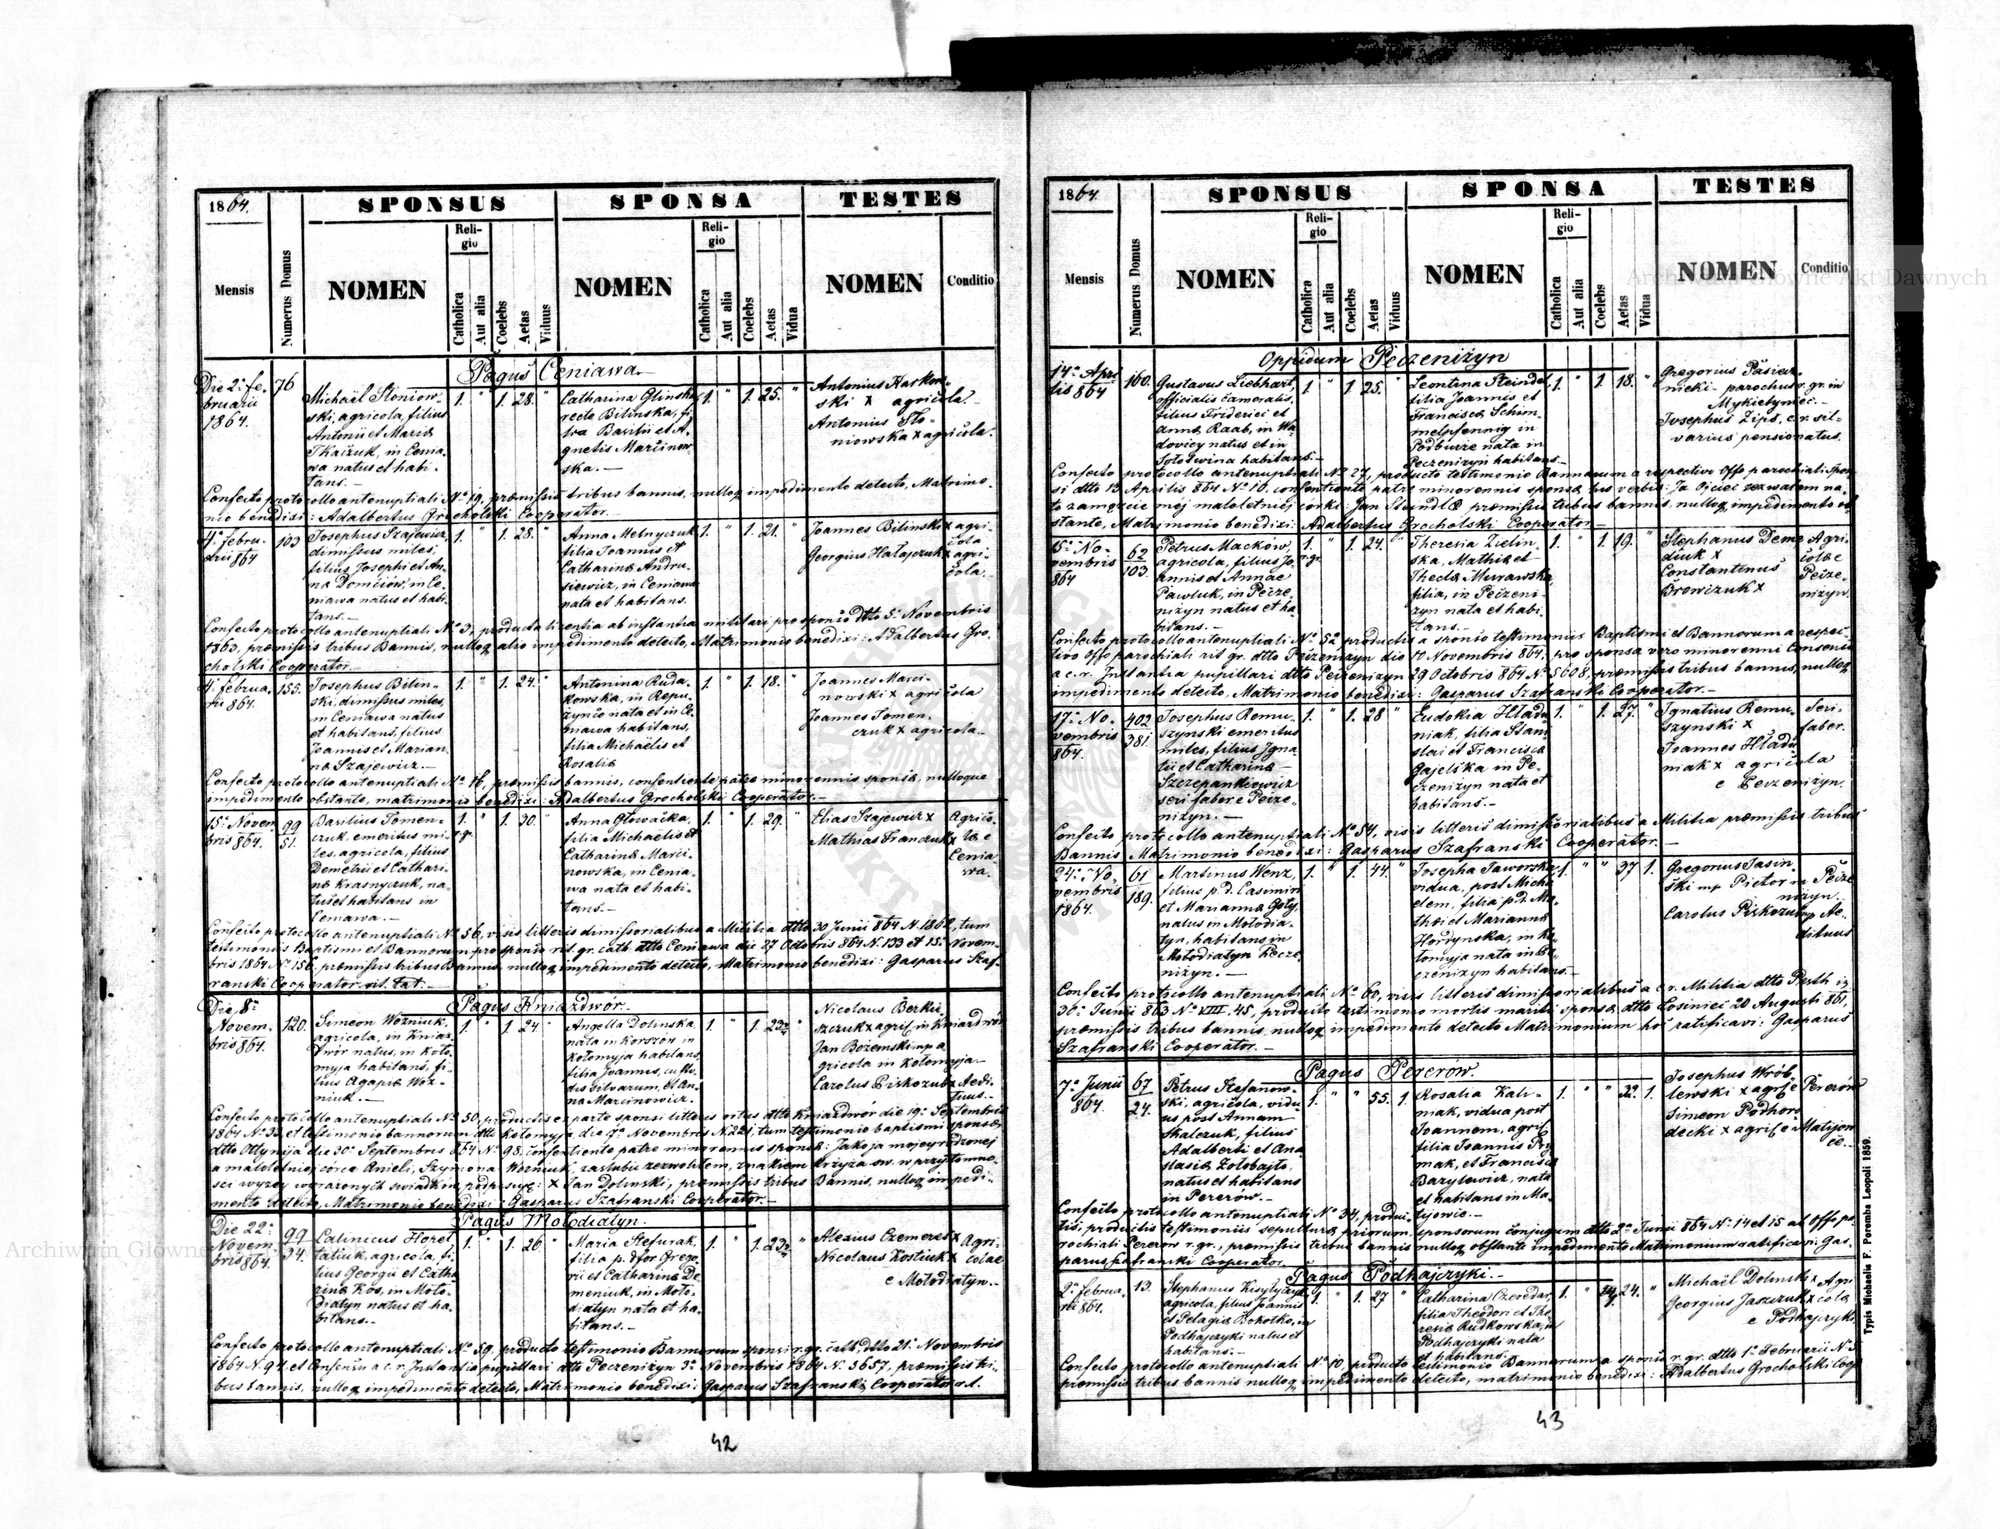 1864.
SPONSUS
SPONSA
TESTES
Mensis
Numerus Domus
NOMEN
Religio
Catholica
Aut alia
Coelebs
Aetas
Viduus
NOMEN
Religio
Catholica
Aut alia
Coelebs
Aetas
Vidua
NOMEN
Conditio
Pagus Ceniawa
Die 2. fe-
bruarii
1864.
76
Michaël Stoniow-
ski, agricola, filius
Antonii et Maria
Tkaczuk, in Cenia-
wa natus et habi-
tans.—
1. " 1. 28. "
Catharina Glinska
recte Bilinska, fi-
lia Basilii et A-
gnetis Marcinow-
ska.—
1. " 1. 25. "
Antonius Harkow-
ski x agricola
Antonius Sto-
niowska x agricola.
Confecto protocollo antenuptiali No 19, præmissis tribus bannis, nulloq impedimento detecto, Matrimo-
nio benedixi: Adalbertus Grocholski Cooperator.—
4. februa-
rii 864
103
Josephus Szajewicz
dimissus miles,
filius Josephi et An-
na Domciów, in Ce-
niawa natus et habi-
tans.—
1. " 1. 28. "
Anna Melnyczuk
filia Joannis et
Catharina Andru-
siewicz, in Ceniawa
nata et habitans.
1. " 1. 21. "
Joannes Bilinski x agri-
cola
Georgius Hałajczuk x agri-
cola.
Confecto protocollo antenuptiali No 3, producta licentia ab instantia militari pro sponso dtto 5. Novembris
1863, præmissis tribus Bannis, nulloq alio impedimento detecto, Matrimonio benedixi: Adalbertus Gro-
cholski Cooperator.—
4. februa-
rii 864.
155.
Josephus Bilin-
ski, dimissus miles,
in Ceniawa natus
et habitans, filius
Joannis et Marian-
na Szajewicz.—
1. " 1. 24. "
Antonina Ruda-
kowska, in Repu-
zynce nata et in Ce-
niawa habitans,
filia Michaëlis et
Rosalia
1. " 1. 18. "
Joannes Marci-
nowski x agricola
Joannes Tomen-
czuk x agricola.—
Confecto protocollo antenuptiali No 16, præmissis bannis, consentiente patre minorennis sponsa, nulloque
impedimento obstante, matrimonio benedixi: Adalbertus Grocholski Cooperator.—
15. Novem-
bris 864.
99
51.
Basilius Tomen-
czuk emeritus mi-
les, agricola, filius
Demetrii et Cathari-
na Krasnyczuk, na-
tus et habitans in
Ceniawa.—
1. " 1. 30. "
r.g.
Anna Głowacka,
filia Michaëlis et
Catharina Marci-
nowska, in Cenia-
wa nata et habi-
tans.—
1. " 1. 29. "
Elias Szajewicz x
Mathias Franczuk x
Agrico-
la e
Cenia-
wa.
Confecto protocollo antenuptiali No 56, visis litteris dimissorialibus a Militia dtto 30 Junii 864 N. 1862, tum
testimoniis Baptismi et Bannorum pro sponso rit. gr. cath. dtto Ceniawa die 27 Octobris 864 N. 133 et 15. Novem-
bris 1864 No 156, præmissis tribus Bannis, nulloq impedimento detecto, Matrimonio benedixi: Gasparus Szaf-
ranski Cooperator rit. lat.—
Pagus Kniazdwor.
Die 8.
Novem-
bris 864.
120.
Simeon Wozniuk,
agricola, in Kniaz-
dwór natus, in Koło-
myja habitans, fi-
lius Agapia Woz-
niuk.—
1. " 1. 24. "
Angella Dolinska,
nata in Korszow in
Kołomyja habitans,
filia Joannis, custo-
dis silvarum, et An-
na Marcinowicz.
1. " 1. 23½ "
Nicolaus Berki-
szczuk x agric. in Kniazdwór
Jan Bożemski mp a-
gricola in Kołomyja—
Carolus Piskozub x Aedi-
tuus.—
Confecto protocollo antenuptiali No 50, productis ex parte sponsi litteris ortus dtto Kniazdwór die 19. Septembris
1864 No 33, et testimonio bannorum dtto Kołomyja die 7. Novembris N. 221, tum testimonio baptismi sponsa
dtto Ottynija die 30. Septembris 864 No 95, consentiente patre minorennis sponsa: Jako ja mojey rodzonej
a małoletniej córce Anieli, Szymona Wozniuk, zaslubic zezwoliłem, znakiem krzyża sw. w przytomno-
sci wyzey wyrażonych swiadków, podpisuję: x Jan Dolinski, præmissis tribus Bannis, nulloq impedi-
mento detecto, Matrimonio benedixi: Gasparus Szafranski Cooperator.—
Pagus Mołodiatyn.
Die 22.
Novem-
bris 864.
99
34.
Calinicus Floret-
tatiuk, agricola, fi-
lius Georgii et Catha-
rina Kos, in Moło-
diatyn natus et ha-
bitans.—
1. " 1. 26 "
Maria Stefurak,
filia p. dfor. Grego-
rii et Catharina De-
meniuk, in Moło-
diatyn nata et ha-
bitans.—
1. " 1. 23½ "
Alexius Czemeres x
Nicolaus Kostiuk x
Agri-
colae
e Mołodiatyn.—
Confecto protocollo antenuptiali No 59, producto testimonio Bannorum sponsi r. gr. cath. dtto 21. Novembris
1864 N. 92 et Consensu a c. r. Instantia pupillari dtto Peczenizyn 3. Novembris 1864 N. 3657, præmissis tri-
bus bannis, nulloq impedimento detecto, Matrimonio benedixi: Gasparus Szafranski Cooperator r. l.
42
1864.
SPONSUS
SPONSA
TESTES
Mensis
Numerus Domus
NOMEN
Religio
Catholica
Aut alia
Coelebs
Aetas
Viduus
NOMEN
Religio
Catholica
Aut alia
Coelebs
Aetas
Vidua
NOMEN
Conditio
Oppidum Peczeniżyn
14. Apri-
lis 864
160.
Gustavus Liebhart,
officialis cameralis,
filius Friderici et
Anna Raab, in Wa-
dovicy natus et in
Sołotwina habitans.—
1. " 1 25. "
Leontina Steindel,
filia Joannis et
Francisca Schim-
melpfennig in
Podbuże nata in
Peczenizyn habitans.—
1. " 1. 18. "
Gregorius Pasiecz-
nicki parochus r. gr. in
Mykietyniec.—
Josephus Zips, c. r. sil-
varius pensionatus.
Confecto protocollo antenuptiali No 27, producto testimonio Bannorum a respectivo Offo parochiali Spon-
si dtto 13 Aprilis 864 No 10. consentiente patre minorennis sponsa his verbis: Ja Ojciec zezwalam na
to zamęzcie mej małoletniej córki Jan Steindl præmissis tribus bannis, nulloq impedimento ob-
stante, Matrimonio benedixi: Adalbertus Grocholski Cooperator.—
15. No-
vembris
864
62
103.
Petrus Macków,
agricola, filius Jo-
annis et Annae
Pawluk, in Pecze-
nizyn natus et ha-
bitans.—
1. " 1. 24. "
r.gr.
Theresia Zielin-
ska, Mathia et
Thecla Murawska
filia, in Peczeni-
zyn nata et habi-
tans.—
1. " 1. 19. "
Stephanus Deme-
diuk x
Constantinus
Browczuk x
Agri-
colae
Pecze-
nizyn.
Confecto protocollo antenuptiali No 52 productis a sponso testimoniis Baptismi et Bannorum a respec-
tivo Offo parochiali rit. gr. dtto Peczenizyn die 10 Novembris 864, pro sponsa vero minorenni Consensu
a c. r. Instantia pupillari dtto Peczenizyn 29 Octobris 864 N. 3608, præmissis tribus bannis, nulloq
impedimento detecto, Matrimonio benedixi: Gasparus Szafranski Cooperator.—
17. No-
vembris
864.
402
381.
Josephus Remu-
szynski emeritus
miles, filius Igna-
tii et Catharina
Szczepankiewicz
seri faber e Pecze-
nizyn.—
1. " 1. 28 "
Eudokia Hładu-
niak, filia Stani-
slai et Francisca
Gajelska in Pe-
czenizyn nata et
habitans.—
1. " 1. 27. "
Ignatius Remu-
szynski x
Joannes Hładu-
niak x agricola
e Peczenizyn.
Seri-
faber.
Confecto protocollo antenuptiali No 54, visis litteris dimissorialibus a Militia præmissis tribus
Bannis Matrimonio benedixi: Gasparus Szafranski Cooperator.—
24. No-
vembris
1864.
61
189.
Martinus Wenz,
filius p.d. Casimiri
et Marianna Goty,
natus in Mołodia-
tyn, habitans in
Mołodiatyn Pecze-
nizyn.—
1. " 1. 44. "
Josepha Jaworska
vidua, post Micha-
elem, filia p.d. Ma-
thaei et Marianna
Hordynska, in Ko-
łomyja nata in Pe-
czenizyn habitans.—
1. " " 37 1.
Gregorius Jasin-
ski mp Pictor in Pecze-
nizyn.
Carolus Piskozub mp Ae-
dituus
Confecto protocollo antenuptiali No 60, visis litteris dimissorialibus a c. r. Militia dtto Pesth
30. Junii 863 No VIII. 45, producto testimonio mortis mariti sponsa, dtto Łosiniec 20 Augusti 861,
præmissis tribus bannis, nulloq impedimento detecto Matrimonium hoc ratificavi: Gasparus
Szafranski Cooperator.—
Pagus Pererów.
7. Junii
864.
67
24.
Petrus Stefanow-
ski, agricola, vidu-
us post Annam
Skalczuk, filius
Adalberti et Ana-
stasia Zołobajto,
natus et habitans
in Pererów.—
1. " " 55. 1
Rosalia Kali-
niak, vidua post
Joannem, agric.
filia Joannis Pry-
mak, et Francisca
Bazylewicz, nata
et habitans in Ma-
tyjowce.—
1. " " 32. 1.
Josephus Wrób-
lewski x agric. e Pererów
Simeon Podhoro-
decki x agric. e Matijow-
ce.—
Confecto protocollo antenuptiali No 34, produc-
tis, productis testimoniis sepultura priorum sponsorum conjugum dtto 2. Junii 864 No 14 et 15 ab Offo pa-
rochiali Pererow r. gr., præmissis tribus bannis nulloq obstante impedimento Matrimonium ratificavi: Gas-
parus Szafranski Cooperator
Pagus Podhajczyki.—
2. februa-
rii 864.
13.
Stephanus Kisylyczyk
agricola, filius Joannis
et Pelagia Bohotko, in
Podhajczyki natus et
habitans.—
1. " 1. 27 "
Catharina Czeredar,
filia Theodori et The-
resia Rudkowska, in
Podhajczyki nata
et habitans.—
1. " 24. "
Michaël Dolinski x
Georgius Jaszczuk x
Agri-
cola
e Podhajczyki
Confecto protocollo antenuptiali No 10, producto testimonio Bannorum a sponso r. gr. dtto 1. Februarii N. 3
præmissis tribus bannis nulloq impedimento detecto, matrimonio benedixi: Adalbertus Grocholski Coop
43
Typis Michaelis F. Poremba Leopoli 1859.
Archiwum Główne Akt Dawnych